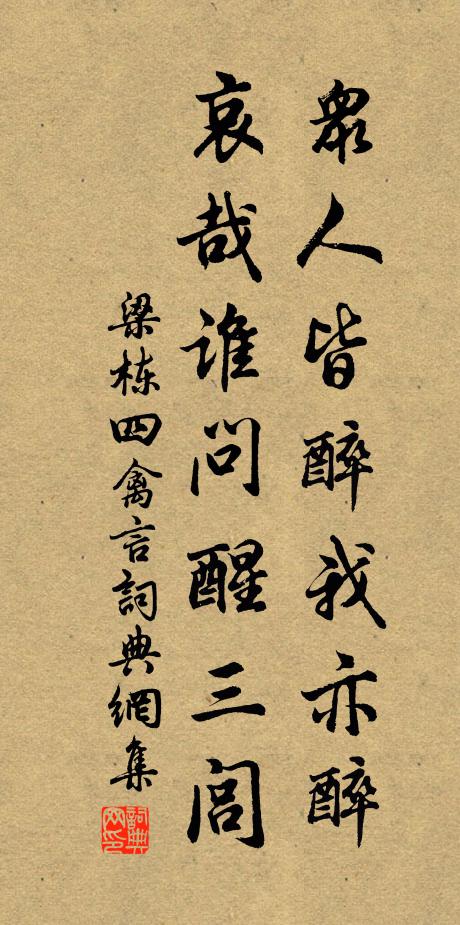 眾人皆醉我亦醉
哀哉誰問醒三閭
梁栋四禽言詞典網集
詞典网印